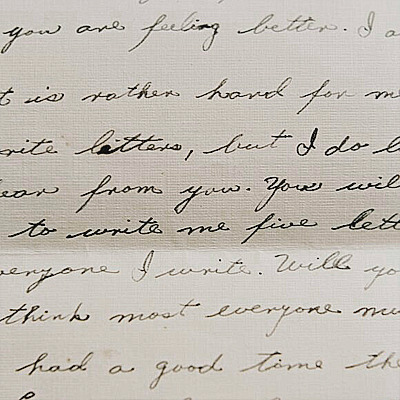 you are feeling better. I a
t is rather hard for me
rite letters, but I do l
ear from you. You wil
to write me five lett
veryone I write. Will yo
think most everyone mu
had a good time the